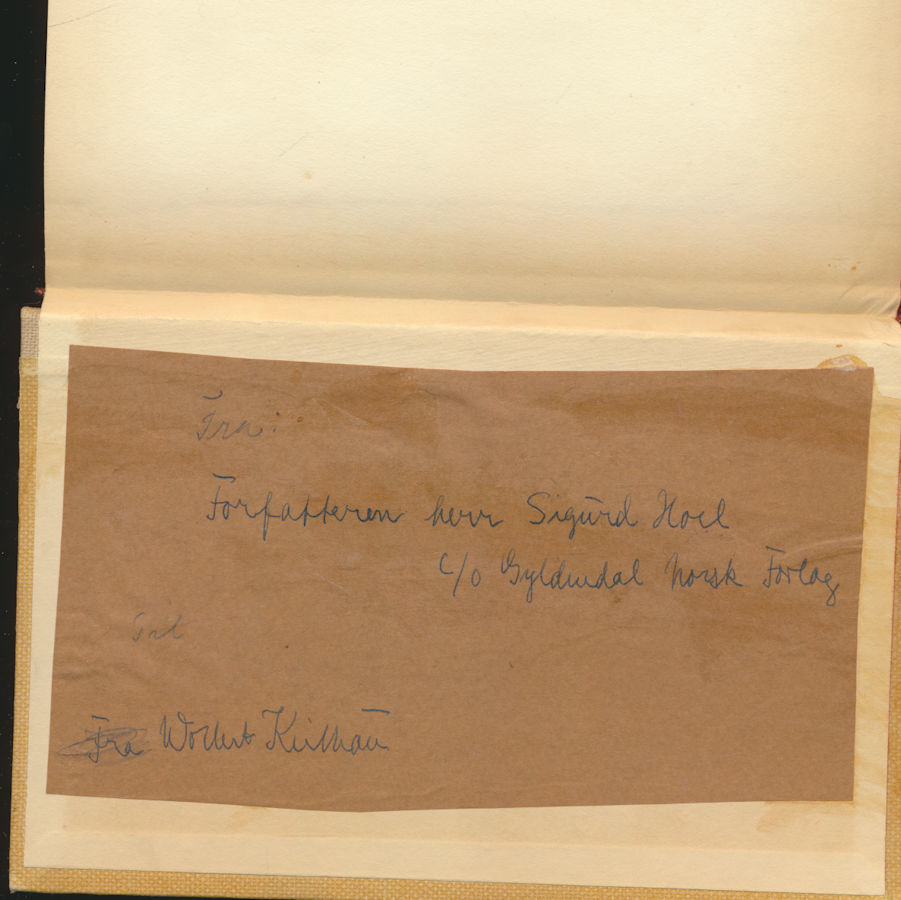 Fra:
Forfatteren herr Sigurd Hoel
c/o Gyldendal Norsk Forlag
Til
Fra Wollert Keilhau